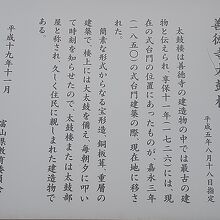 善徳寺太鼓
平成五年八月十八日指定
太鼓楼は善徳寺の建造物の中では最古の建
物と伝えられ、享保十一年(一七二六)には、現
在の式台門の位置にあったものが、嘉永三年
(一八五〇)の式台門建築の際、現在地に移さ
れた。
簡素な形式からなる宝形造、銅板葺、重層の
建築で、楼上には大太鼓を備え、毎朝夕に叩い
て時刻を知らせたので、太鼓楼または太鼓部
屋と称され、久しく住民に親しまれた建造物で
平成十九年十一月
富山県教育委員会